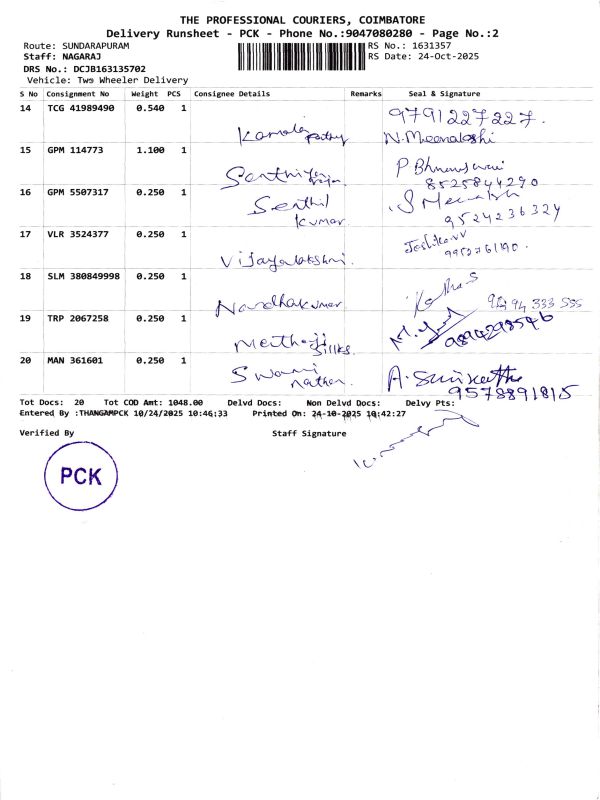 THE PROFESSIONAL COURIERS, COIMBATORE
Delivery Runsheet - PCK - Phone No.:9047080280 - Page No.:2
Route: SUNDARAPURAM
RS No.: 1631357
Staff: NAGARAJ
RS Date: 24-Oct-2025
DRS No.: DCJB163135702
Vehicle: Two Wheeler Delivery
S No Consignment No Weight PCS Consignee Details Remarks Seal & Signature
14 TCG 41989490 0.540 1
9791227227.
Kamala pathy N. Meenakshi
15 GPM 114773 1.100 1
P Bhuvaneswari
Senthil 8525844290
16 GPM 5507317 0.250 1
Senthil Kumar 9524236324
17 VLR 3524377 0.250 1
9952761190.
Vijayalakshmi.
18 SLM 380849998 0.250 1
Nandhakumar
19 TRP 2067258 0.250 1
9894298546
Silks.
20 MAN 361601 0.250 1
Swami nathan. A.
9578891815
Tot Docs: 20 Tot COD Amt: 1048.00 Delvd Docs: Non Delvd Docs: Delvy Pts:
Entered By :THANGAMPCK 10/24/2025 10:46:33 Printed On: 24-10-2025 10:42:27
Verified By Staff Signature
PCK